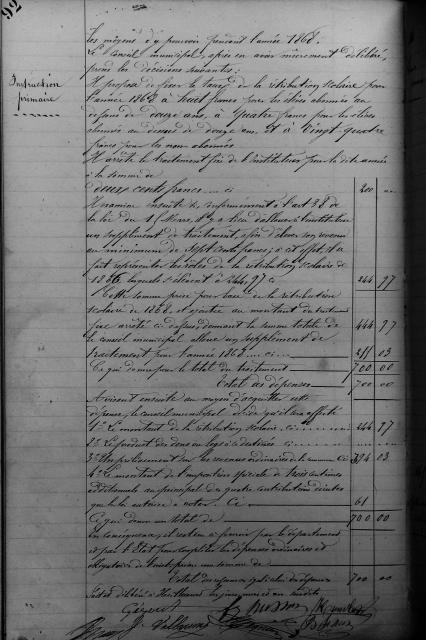 92
Instruction
primaire
les moyens d'y pourvoir pendant l'année 1868.
Le Conseil municipal, après en avoir mûrement délibéré,
prend les décisions suivantes:
Il propose de fixer le taux de la rétribution scolaire pour
l'année 1868 à huit francs pour les élèves abonnés au
dessous de douze ans, à quatre francs pour les élèves
abonnés au dessus de douze ans et à vingt-quatre
francs pour les non abonnés
Il arrête le traitement fixe de l'instituteur pour la dite année
à la somme de
deux cents francs ci 200
Il examine ensuite si, conformément à l'art 38 de
la loi du 15 Mars, il y a lieu d'allouer à l'instituteur
un supplément de traitement, afin d'élever son revenu
au minimum de sept cents francs; à cet effet, il
fait représenter les rôles de la rétribution scolaire de
1866, lesquels s'élèvent à 244, 97 ci 244 97
Cette somme prise pour base de la rétribution
scolaire de 1868, et ajoutée au montant du traitement
fixe arrêté ci dessus, donnant la somme totale de 444 97
le conseil municipal alloue un supplément de
traitement pour l'année 1868 ci 255 03
Ce qui donne pour le total du traitement 700 00
Total des dépenses 700 00
Avisant ensuite au moyen d'acquitter cette
dépense, le conseil municipal décide qu'il sera affecté
1° Le montant de la rétribution scolaire ci 244 97
2° Le produit des dons ou legs à ce destinés ci
3° Un prélèvement sur les revenus ordinaires de la commune ci 394 03
4° Le montant de l'imposition spéciale de trois centimes
additionnels au principal des quatre contributions directes
qu'elle autorise à voter. Ci 61
Ce qui donne un total de 700 00
En conséquence, il restera à fournir par le département
et par l'Etat pour compléter les dépenses ordinaires et
obligatoires de l'instruction une somme de
Total des ressources égal à celui des dépenses 700 00
Fait et délibéré à les jour, mois et an susdits